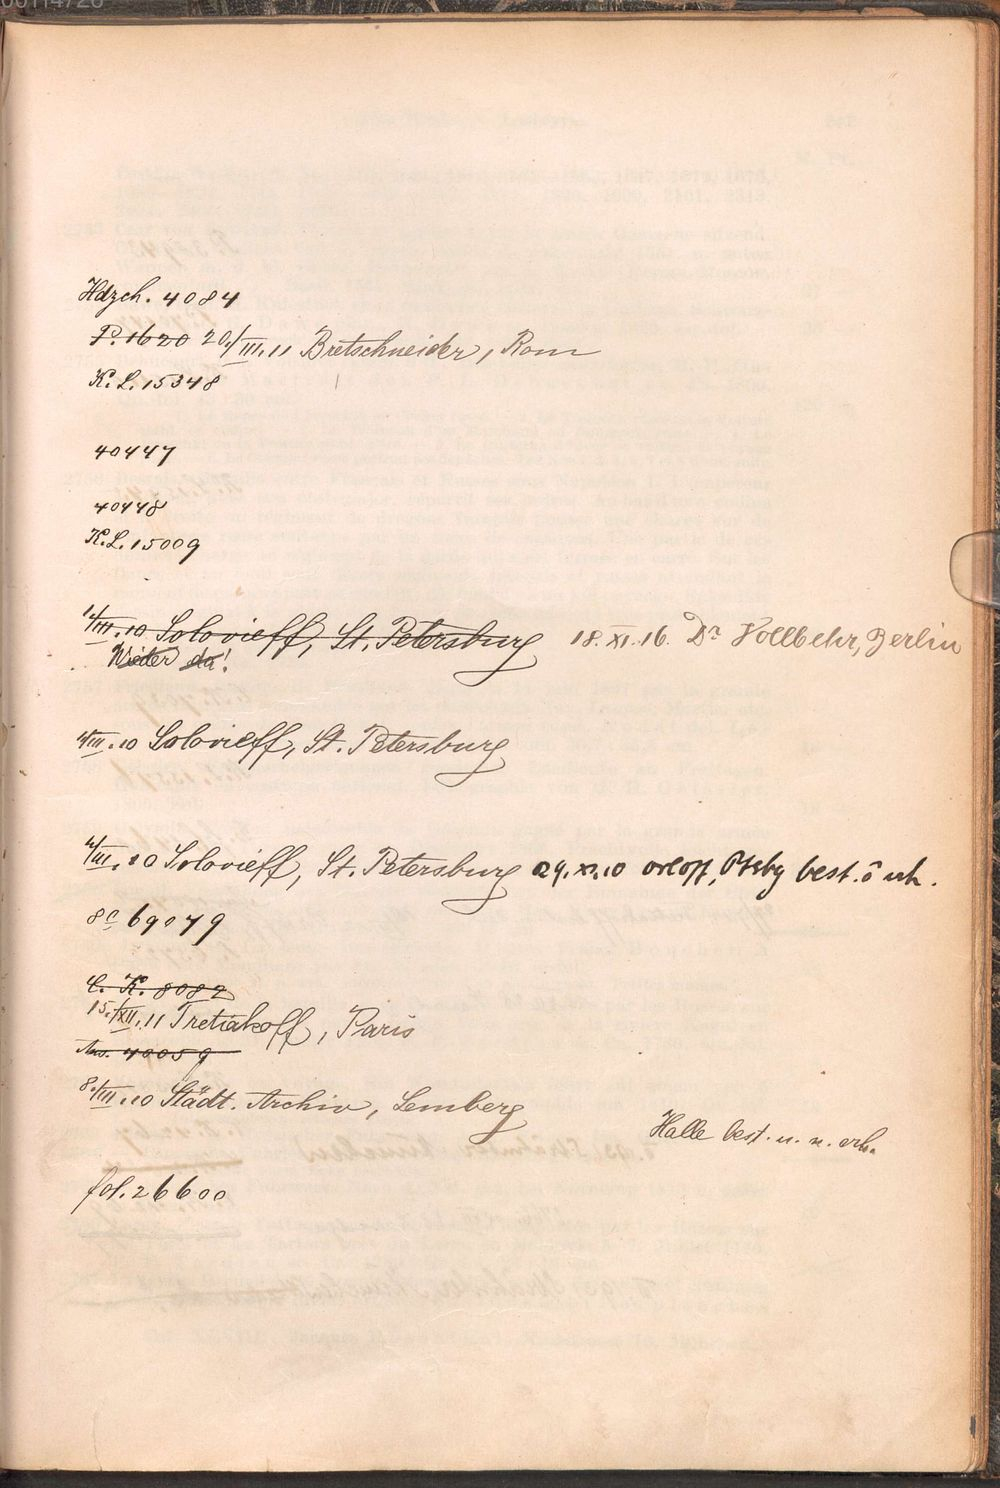 Hdzch. 4084
P. 1620 20/III.11 Bretschneider, Rom
K. L. 15348
40447
40448
K. L. 15009
1/III.10 Solovieff, St. Petersburg 18. XI. 16. Dr Vollbehr, Berlin
Wieder da!
4/III.10 Solovieff, St. Petersburg
4/III.10 Solovieff, St. Petersburg 29. XI. 10 Orloff, Ptsbg best. o erh.
8° 69079
C. K. 8082
15./XII.11 Tretiakoff, Paris
40059
8./III.10 Städt. Archiv, Lemberg
Halle best. u. n. erh.
fol. 26600